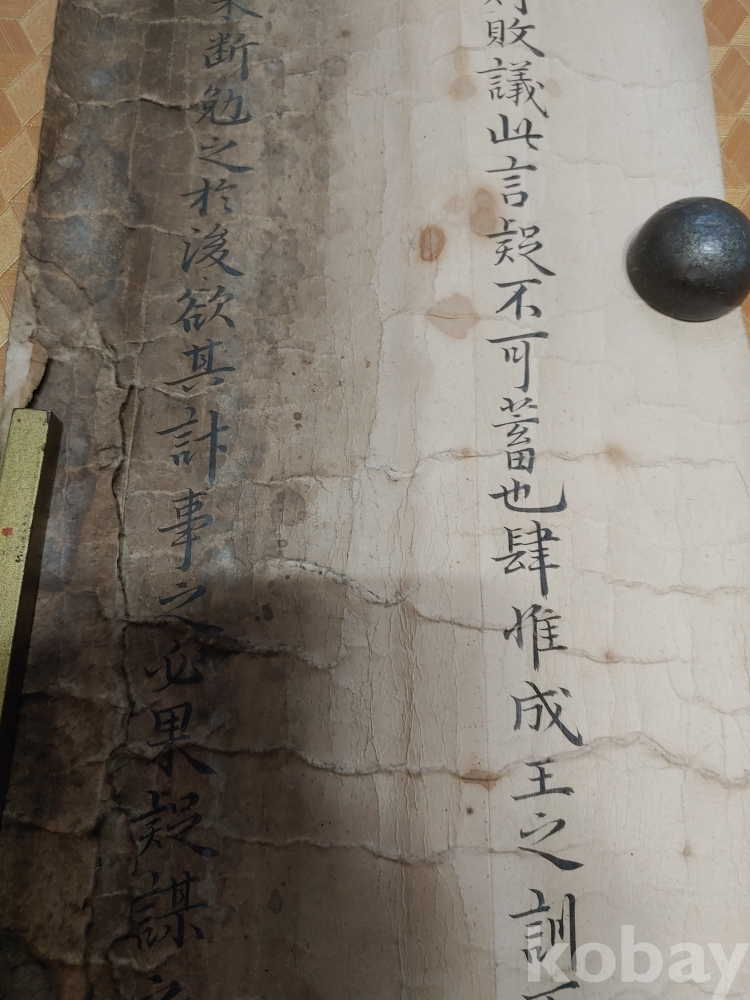 敗議此言疑不可蓄也肆惟成王之訓
断勉之於後欲其計事之必果疑謀之
kobay